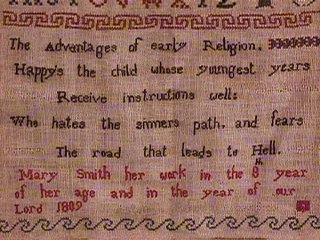 The Advantages of early Religion.
Happy's the child whose youngest years
Receive instructions well:
Who hates the sinners path, and fears
The road that leads to Hell.
Mary Smith her work in the 8 th year
of her age and in the year of our
Lord 1809